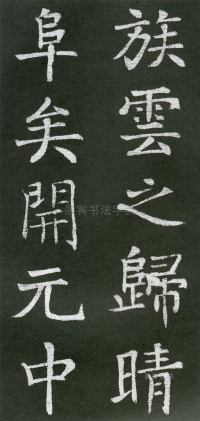 族雲之歸晴
阜矣開元中